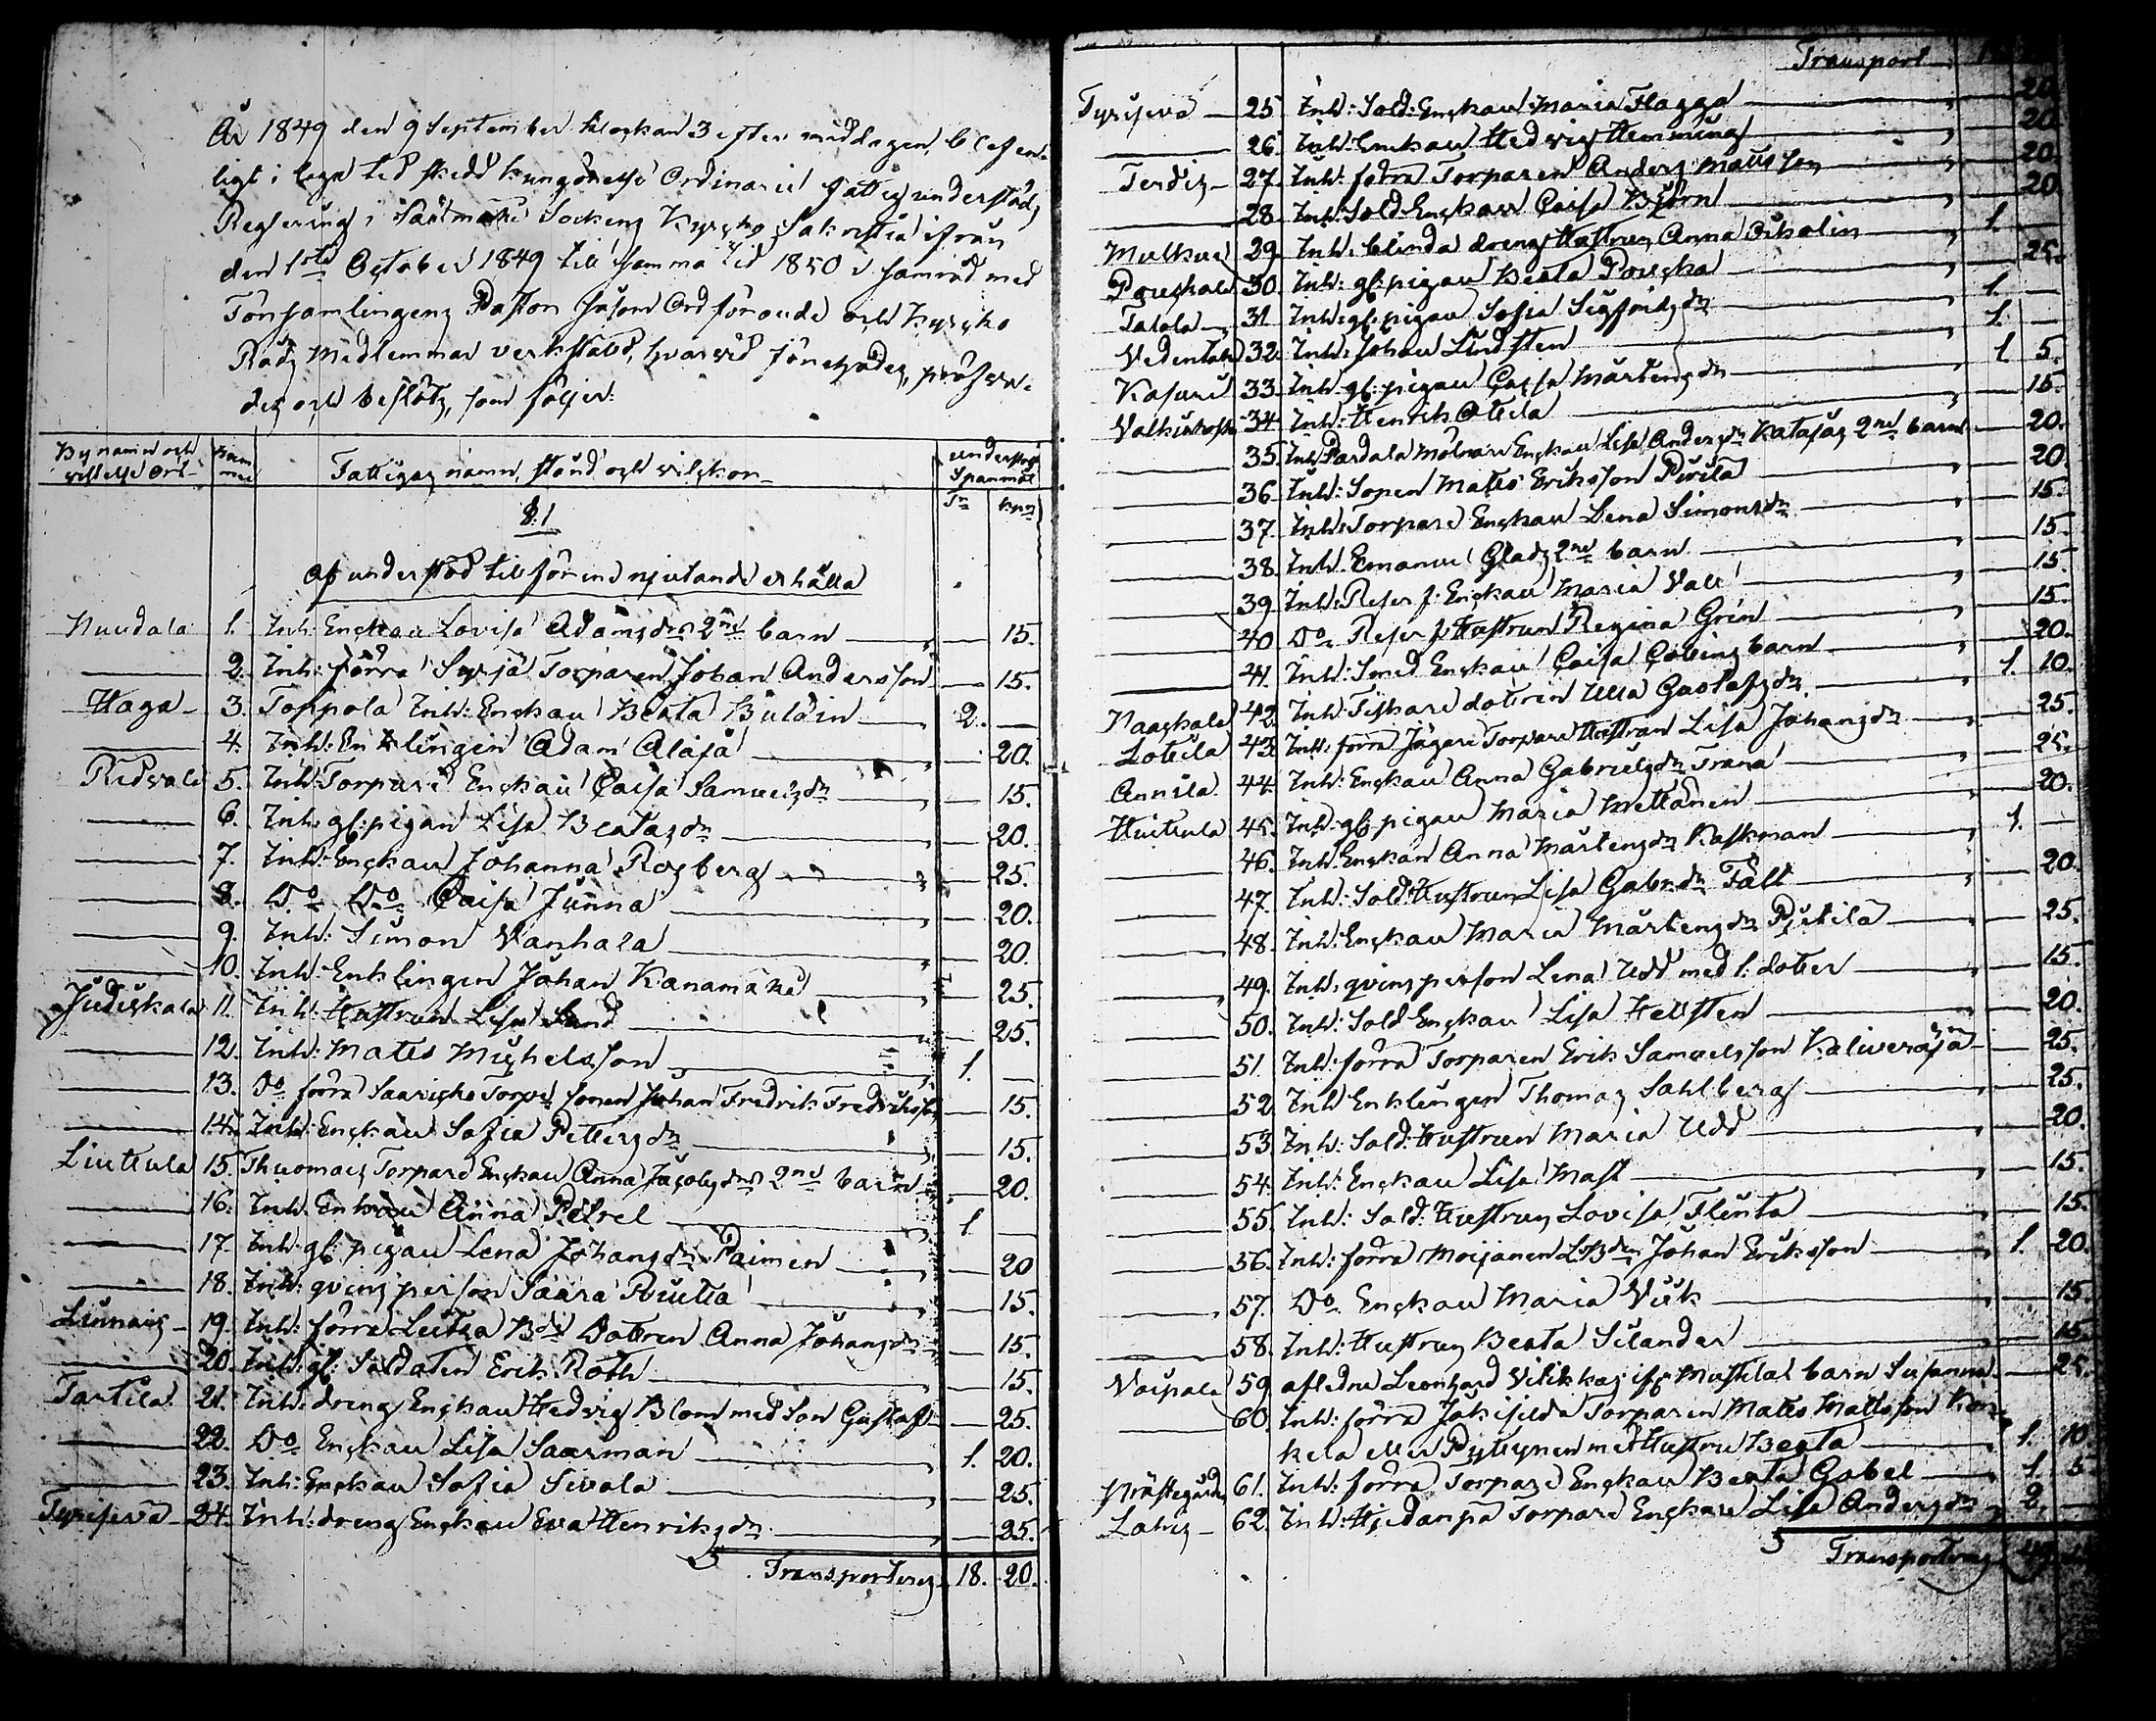 År 1849 den 9 September klockan 3 efter middagen, blef en-
ligt i laga tid skedd kungörelse Ordinarie fattig understöds
Reglering i Sääxmäki Sockens Kyrcko Sakristia ifrån
den 1sta October 1849 till samma tid 1850 i samråd med
Församlingens Pastor såsom Ordförande och Kyrcko
Råds Medlemmar verkstäld, hvarvid förehades, pröfva-
des och beslöts, som följer:
By namn och vistelse Ort | Num mer | Fattigas namn, stånd och vilckor | understöd Spanmål
Tr | kpr
§ 1
Af understöd till förene njutande erhålla
Huudala 1. Inh: Enckan Lovisa Adamsdr 2ne barn — 15.
2. Inh: förra Syrjä Torparen Johan Andersson — 15.
Haga 3. Toppola Inh: Enckan Beata Buldin 2. —
4. Inh: Enklingen Adam Alajä — 20.
Ridvala 5. Inh: Torpare Enckan Caisa Samuelsdr — 15.
6. Inh: gl: pigan Lisa Beatasdr — 20.
7. Inh: Enckan Johanna Rosberg — 25.
8. Do Do Caisa Junna — 20.
9. Inh: Simon Vanhala — 20.
10. Inh: Enklingen Johan Kanamäki — 25.
Judickala 11. Inh: Hustrun Lisa Lund — 25.
12. Inh: Matts Michelsson 1. —
13. Do förra Saariske Torpe sonen Johan Fredrik Fredriksson — 15.
14. Inh: Enckan Sofia Pettersdr — 15.
Liuttula 15. Thuomais Torpare Enckan Anna Jacobsdr 2ne barn — 20.
16. Inh: Enkan Anna Petrel 1. —
17. Inh: gl: pigan Lena Johansdr Paimen — 20
18. Inh: qvins person Saara Riutta — 15.
Liunais 19. Inh: förra Leutza Bds Dottren Anna Johansdr — 15.
20. Inh: gl: Soldaten Erik Roth — 15.
Tarttila 21. Inh: drengs Enckan Hedvig Blom med son Gustaf — 25.
22. Do Enckan Lisa Saarman 1. 20.
23. Inh: Enckan Sofia Sivala — 25.
Tyrisevä 24. Inh: drengs Enckan Eva Henriksdr — 25.
Transporteras 18. 20.
Transport
Tyrisevä 25 Inh: Sold: Enckan Maria Flagga 20
26. Inh: Enckan Hedvig Hemming 20.
Terdis 27. Inh: förra Torparen Anders Matsson 20.
28. Inh: Sold: Enckan Caisa Björn 20.
29. Inh: blinda drengs Hustrun Anna Ekolin 1. —
30. Inh: gl: pigan Beata 25.
31 Inh: gl: pigan Sofia Sigfridsdr 1. —
32. Inh: Johan Lindsten 1. —
Kasuri 33. Inh: gl: pigan Caisa Mårtensdr 1. 5.
34. Inh: Henrik Attila 15.
35. Inh: Pardala Mölnare Enckan Lisa Andersdr Katajas 2ne barn — 20.
36. Inh: Sopen Matts Eriksson Pirilä 20.
37. Inh: Torpare Enckan Lena Simonsdr 15.
38. Inh: Emanuel Glads 2ne barn 15.
39. Inh: Reser f: Enckan Maria Vall 15.
40 Do Reser f: Hustrun Regina Grön 15.
41. Inh: Smed Enckan Caisa barn 20.
Naackala 42. Inh: Fiskare dottren Ulla Gustafsdr 1. 10.
Lotila 43. Inh: förra Jägare Torpare Hustrun Lisa Johansdr 25.
Annila 44. Inh: Enckan Anna Gabrielsdr Trana 25.
Huittula 45. Inh: gl: pigan Maria Mettänen 20.
46. Inh: Enckan Anna Mårtensdr Raskman 1. —
47. Inh: Sold: Hustrun Lisa Gabrsdr Fält 20.
48. Inh: Enckan Maria Mårtensdr Pjetilä — 25.
49. Inh: qvins person Lena Udd med 1. dotter — 15.
50. Inh: Sold Enckan Lisa Hellsten — 20.
51 Inh: förra Torparen Erik Samuelsson Kaliveräjä — 25.
52 Inh: Enklingen Thomas Sahlberg — 25.
53 Inh: Sold: Hustrun Maria Udd — 20.
54. Inh: Enckan Lisa Mast — 15.
55. Inh: Sold: Hustrun Lovisa Flinta — 15.
56. Inh: förra Moijanen Johan Eriksson 1. 20.
57. Do Enckan Maria Viik 15.
58. Inh: Hustrun Beata Silander 15.
Voipala 59 afledne Leonhard ifr: Mustila barn Susanna — 25.
60. Inh: förra Torparen Matts Mattsson Kon-
kela eller Pyttynen med Hustru Beata 1. 10.
Prästegården 61. Inh: förra Torpare Enckan Beata Gabel 1. 5
Lahis 62. Inh: Hjedanpä Torpare Enckan Lisa Andersdr 2. —
Transporteras